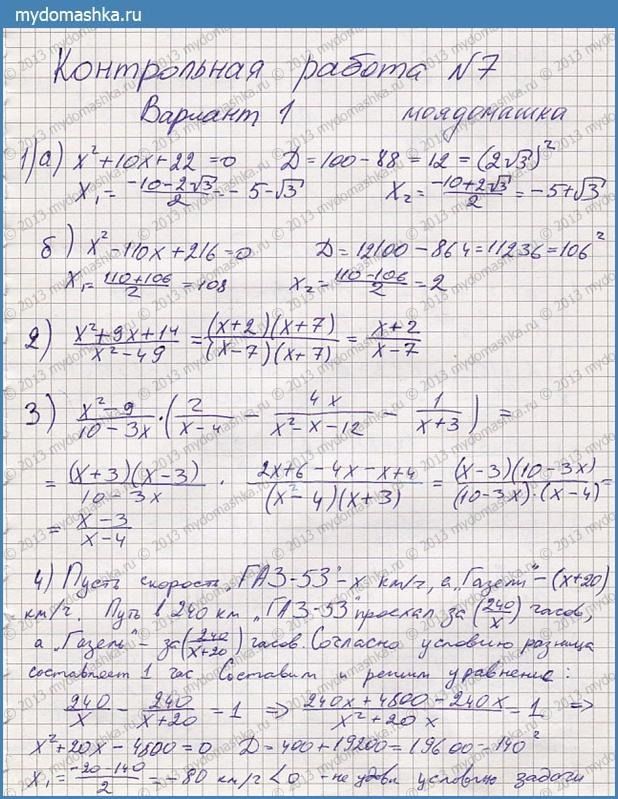 mydomashka.ru
Контрольная работа N7
Вариант 1 моядомашка
1) а) x² + 10x + 22 = 0 D = 100 - 88 = 12 = (2√3)²
x₁ = (-10 - 2√3)/2 = -5 - √3 x₂ = (-10 + 2√3)/2 = -5 + √3
б) x² - 110x + 216 = 0 D = 12100 - 864 = 11236 = 106²
x₁ = (110 + 106)/2 = 108 x₂ = (110 - 106)/2 = 2
2) (x² + 9x + 14)/(x² - 49) = ((x + 2)(x + 7))/((x - 7)(x + 7)) = (x + 2)/(x - 7)
3) (x² - 9)/(10 - 3x) · (2/(x - 4) - 4x/(x² - x - 12) - 1/(x + 3)) =
= ((x + 3)(x - 3))/(10 - 3x) · (2x + 6 - 4x - x + 4)/((x² - 4)(x + 3)) = ((x - 3)(10 - 3x))/((10 - 3x) · (x - 4)) =
= (x - 3)/(x - 4)
4) Пусть скорость "ГАЗ-53" - x км/г, а "Газели" - (x + 20)
км/г. Путь в 240 км "ГАЗ-53" проехал за (240/x) часов,
а "Газель" - за (240/(x + 20)) часов. Согласно условию разница
составляет 1 час. Составим и решим уравнение:
240/x - 240/(x + 20) = 1 => (240x + 4800 - 240x)/(x² + 20x) = 1 =>
x² + 20x - 4800 = 0 D = 400 + 19200 = 19600 = 140²
x₁ = (-20 - 140)/2 = -80 км/г < 0 - не удов условию задачи